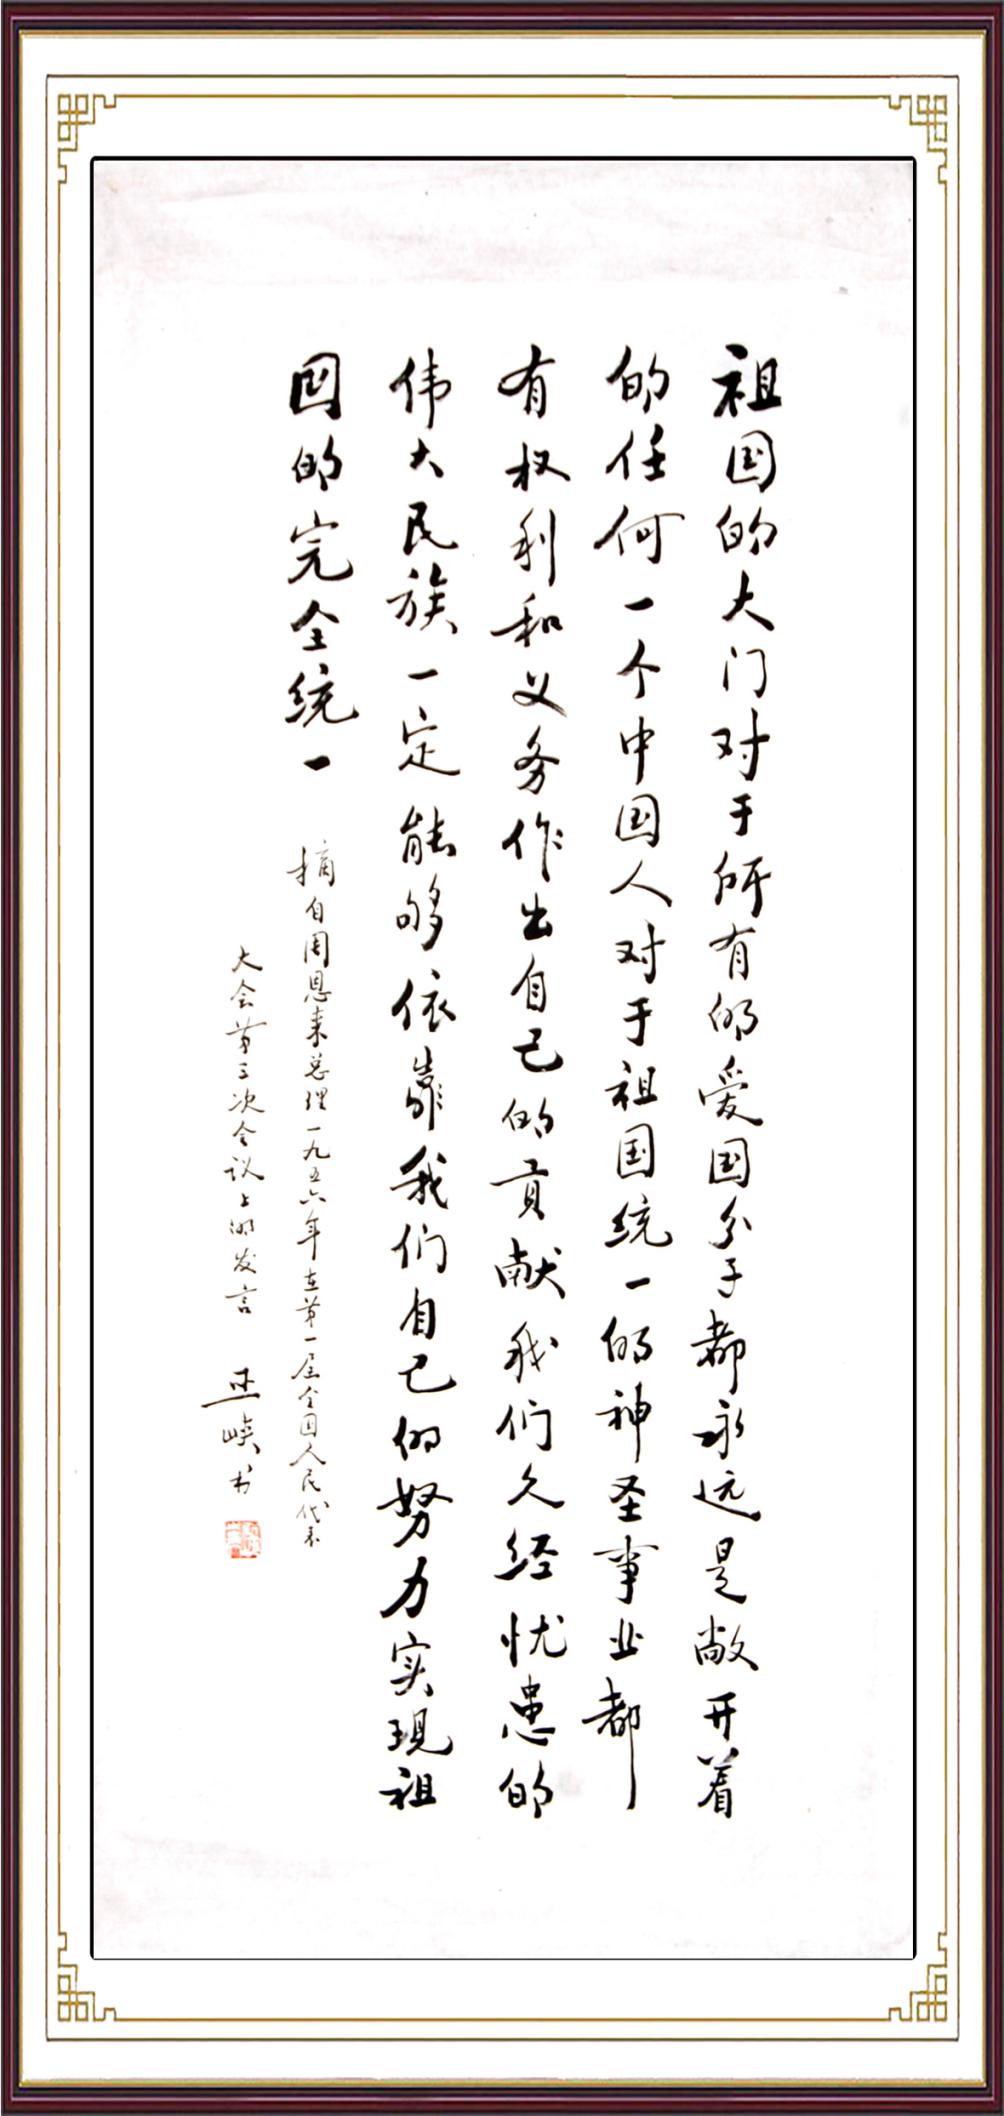 祖国的大门对于所有的爱国分子都永远是敞开着
的任何一个中国人对于祖国统一的神圣事业都
有权利和义务作出自己的贡献我们久经忧患的
伟大民族一定能够依靠我们自己的努力实现祖
国的完全统一
摘自周恩来总理一九五六年在第一届全国人民代表
大会第三次会议上的发言
峡书